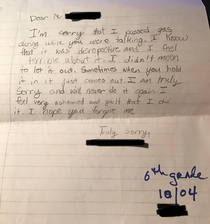 Dear M
I'm sorry that I passed gas
during while you were talking. I know
that it was disrespective and I feel
terrible about it. I didn't mean
to let it out. Sometimes when you hold
it in it just comes out. I am truly
sorry and will never do it again. I
feel very ashamed and guilt that I did
it. I hope you forgive me
Truly sorry,
6th grade
18/04